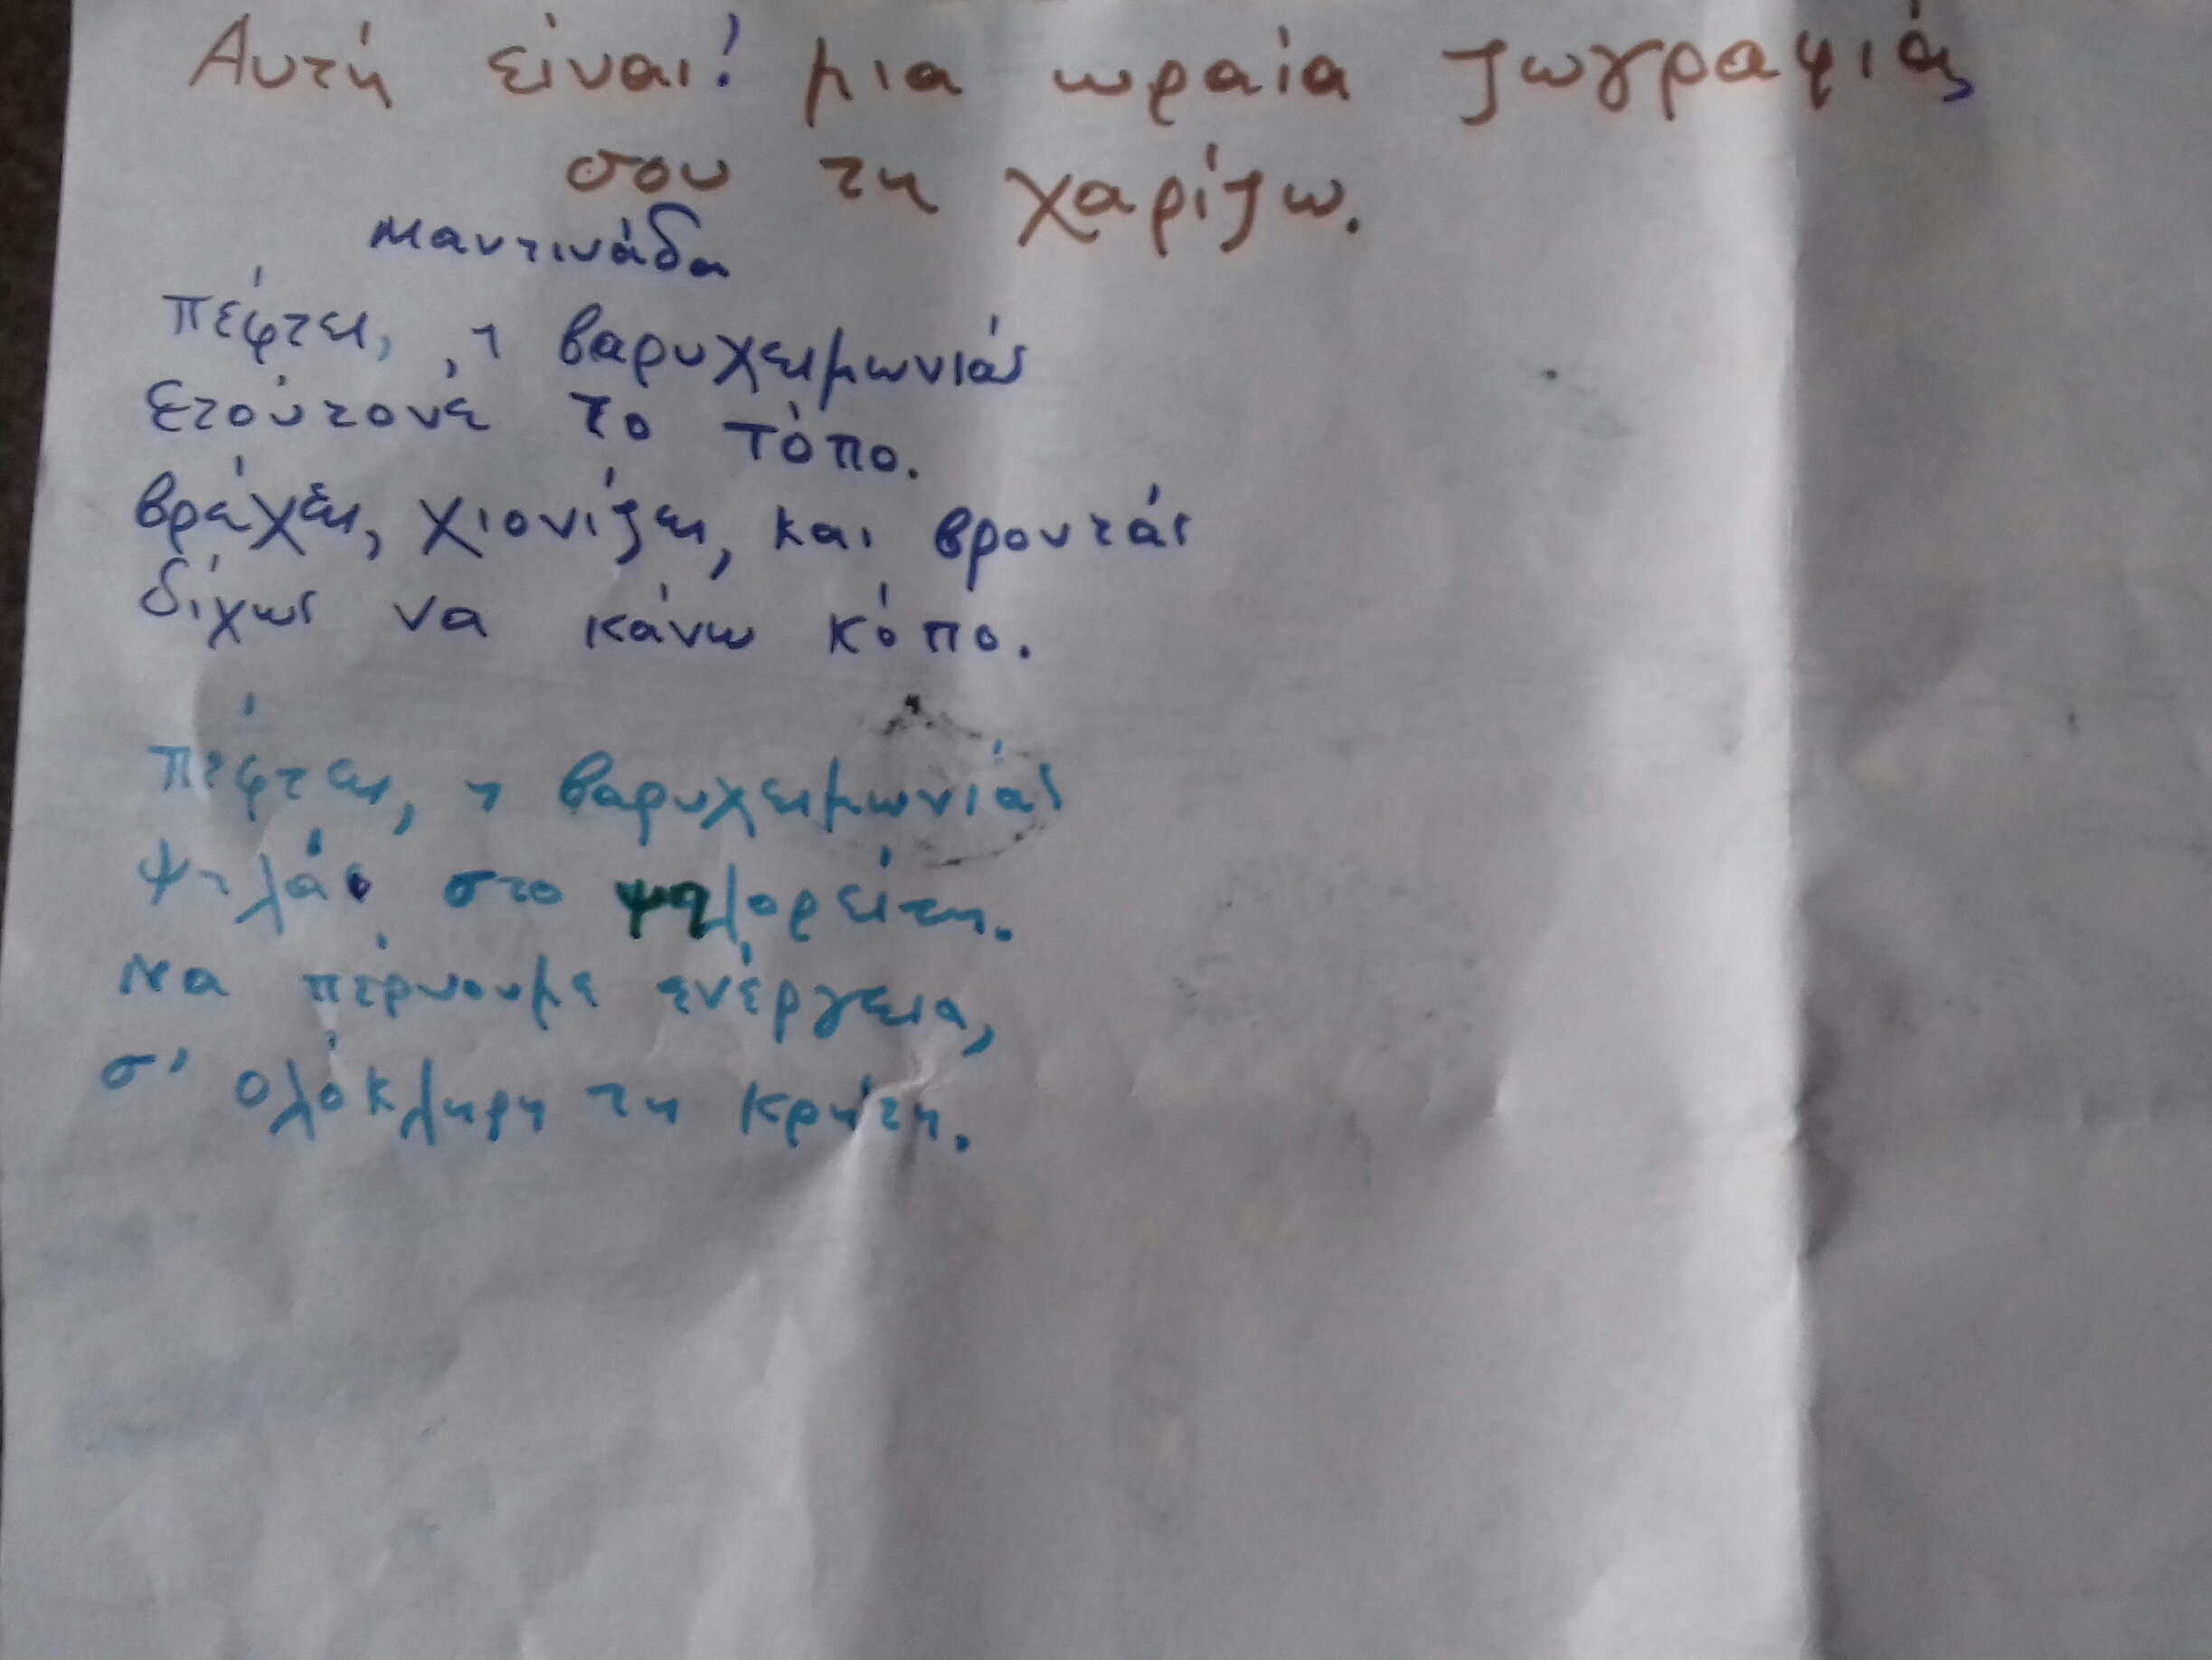 Αυτή είναι! μια ωραία ζωγραφιά,
σου τη χαρίζω.
Μαντινάδα
πέφτει, , η βαρυχειμωνιάς
ετούτονέ το τόπο.
βρέχει, χιονίζει, και βροντάς
δίχως να κάνω κόπο.
πέφτει, η βαρυχειμωνιάς
ψηλά στο ψηλορείτη.
Να πέρνουμε ενέργεια,
σ' ολόκληρη τη κρήτη.